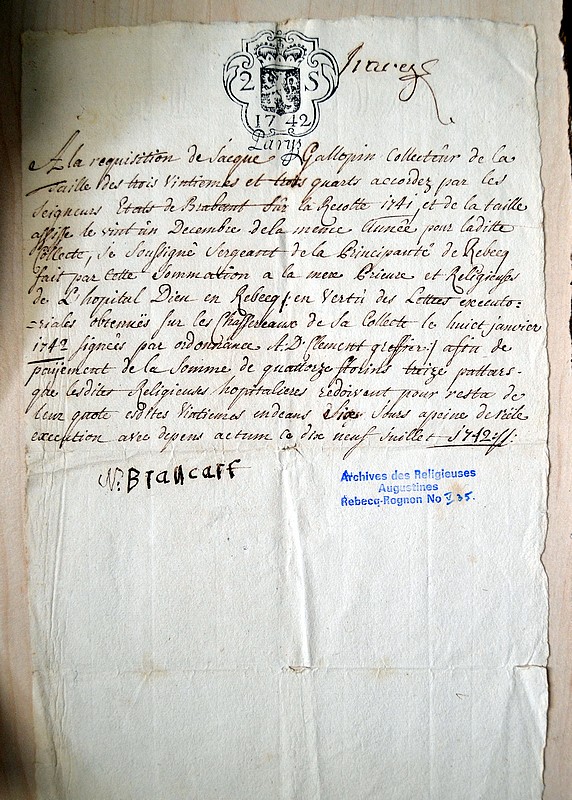 2 S
1742
A la requisition de Jacque Gallopin Collecteur de la
Taille des trois Vintiemes et trois quarts accordez par les
Seigneurs Etats de Brabant Sur la Recolte 1741, et de la taille
assise le vint un Decembre de la mesme Année pour laditte
Collecte, je Soussigné Sergeant de la Principauté de Rebecq
fait par Cette Sommation a la mere Prieure et Religieuses
de L'hopital Dieu en Rebecq /: en Vertu des Lettres executo-
=riales obtenuës sur les Chassereaux de Sa Collecte le huict janvier
1742 signées par ordonnance A. D. Clement greffier :/ afin de
paijement de la Somme de quattorze florins traize pattars
que lesdites Religieuses hopitalieres redoivent pour resta de
leur quote esdites Vintiemes endeans Jours apeine de réele
execution avec depens actum ce dix neuf Juillet 1742
N: Brancart
Archives des Religieuses
Augustines
Rebecq-Rognon No V 35.